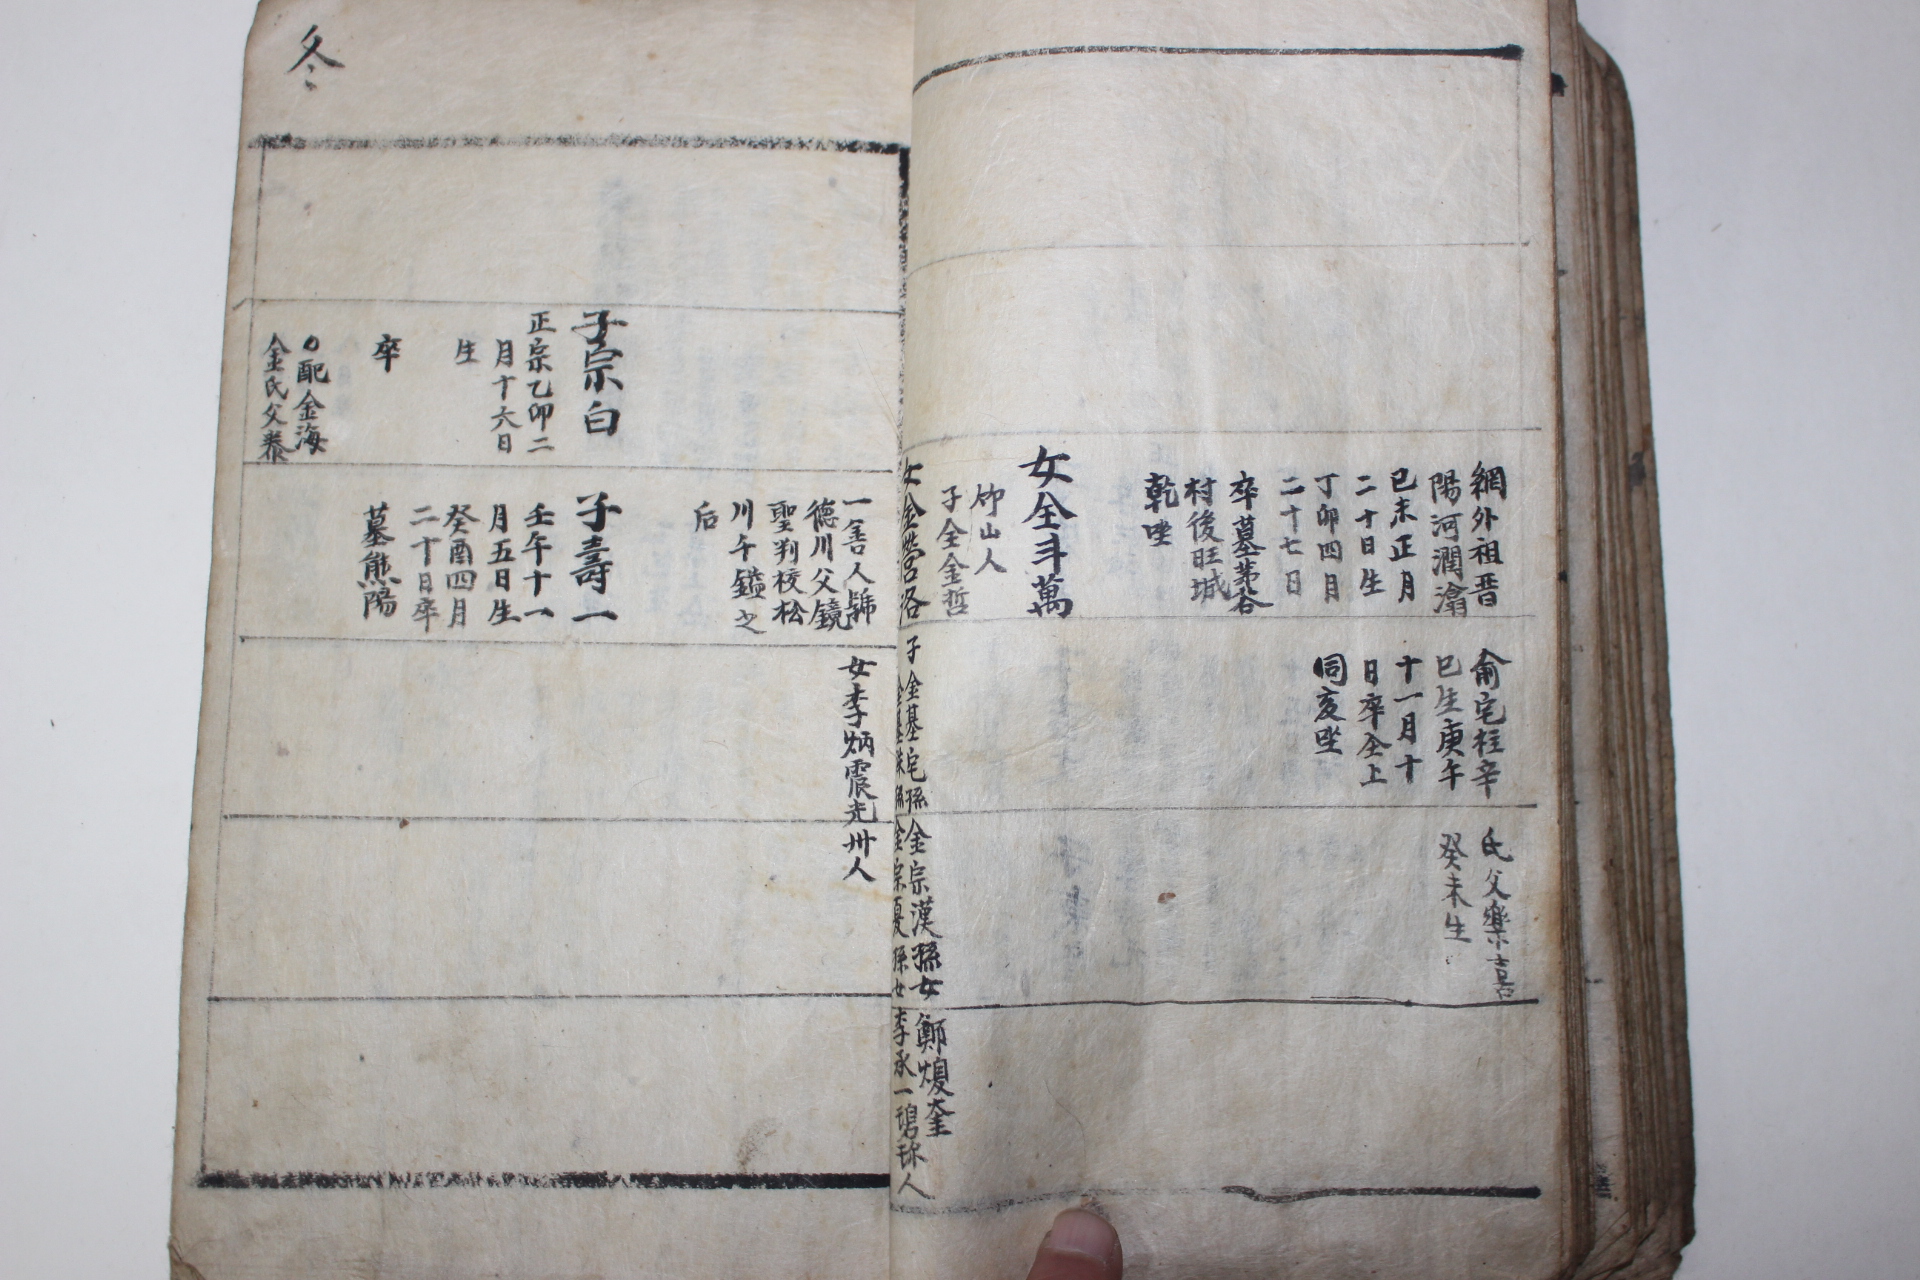 網外祖晋
陽河潤瀹
已未正月
二十日生
丁卯四月
二十七日
卒墓茅谷
村後旺城
乾坐
女全斗萬
竹山人
子全金哲
俞宅柱辛
巳生庚午
十一月十
日卒仝上
同亥坐
氏父樂喜
癸未生
女金營洛
子金基宅孫金宗漢孫女鄭煥奎
孫金宗夏孫女李承一碧珍人
一善人歸
德川父鏡
聖判校松
川午鎰之
后
女李炳震光州人
冬
子宗白
正宗乙卯二
月十六日
生
卒
配金海
金氏父泰
子壽一
壬午十一
月五日生
癸酉四月
二十日卒
墓熊陽